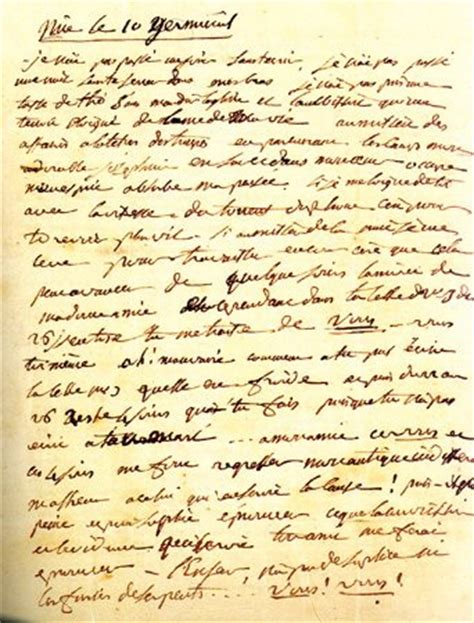 Nice le 10 germinal
je n'ai pas passé un jour sans t'aimer, je n'ai pas passé
une nuit sans te serrer dans mes bras je n'ai pas pris une
tasse de thé sans maudire la gloire et l'ambition qui me
tienne éloigné de l'ame de ma vie au milieu des
affaires a la tete des troupes en parcourant les camps mon
adorable josephine est seule dans mon coeur occupe
mon esprit absorbe ma pensée. si je m'eloigne de toi
avec la vitesse du torrent du rhone c'est pour
te revoir plus vite. si au milieu de la nuit je me
leve pour travailler c'est que cela
peut avancer de quelques jours l'arrivée de
ma douce amie et cependant dans ta lettre du 23 au
26 ventose tu me traite de vous - vous
toi même ah! mauvaise comment a tu pu ecrire
cette lettre quelle est froide et puis du 23 au
26 reste 4 jours qu'a tu fais puisque tu n'as pas
ecrit a ton mari ... ah mon amie ce vous et
ces 4 jours me font regretter mon antique indifference
malheur a celui qui en seroit la cause! puisse-t-il pour
peine et pour suplice eprouver ce que la conviction
et l'evidence qui servit ton ami me feroi
eprouver - l'enfer n'a pas de suplice ni
les furies de serpents ... vous! vous!